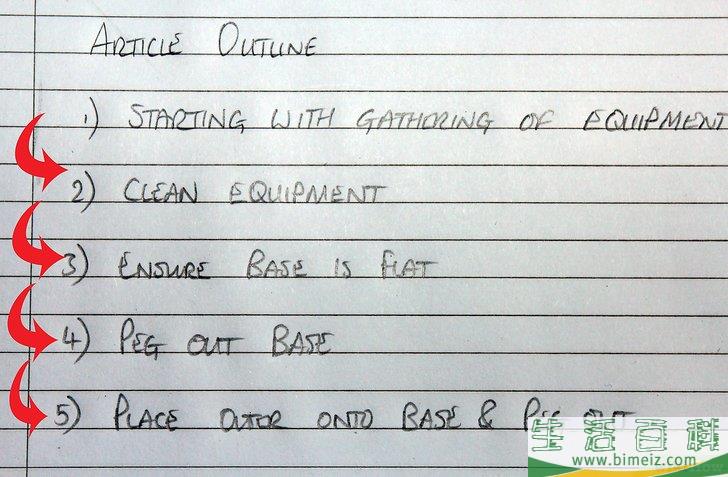 ARTICLE OUTLINE
1) STARTING WITH GATHORING OF EQUIPMENT
2) CLEAN EQUIPMENT
3) ENSURE BASE IS FLAT
4) PEG OUT BASE
5) PLACE OUTOR ONTO BASE & PEG OUT
生活百科
www.bimeiz.com